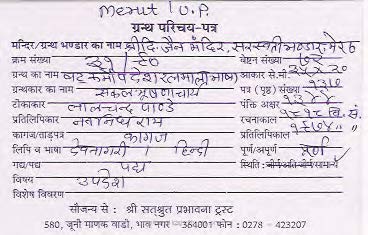 Merut / U.P.
ग्रन्थ परिचय-पत्र
मन्दिर/ग्रन्थ भण्डार का नाम श्री दि. जैन मंदिर, सरस्वती भण्डार, मेरठ
क्रम संख्या वेष्टन संख्या ७२
ग्रन्थ का नाम षट्कर्मोपदेश रत्नमाला भाषा आकार से.मी.
ग्रन्थकार का नाम सकलभूषणाचार्य पत्र (पृष्ठ) संख्या
टीकाकार लालचन्द पाण्डे पंक्ति अक्षर
प्रतिलिपिकार नवनिध राम रचनाकाल १८१८ वि. सं.
कागज/ताड़पत्र कागज प्रतिलिपिकाल
लिपि व भाषा देवनागरी । हिन्दी पूर्ण/अपूर्ण पूर्ण
गद्य/पद्य पद्य स्थिति : जीर्ण/अति जीर्ण/सामान्य
विषय उपदेश
विशेष विवरण
सौजन्य से : श्री सतश्रुत प्रभावना ट्रस्ट
580, जूनी माणक वाडी, भाव नगर - 364001 फोन : 0278 - 423207